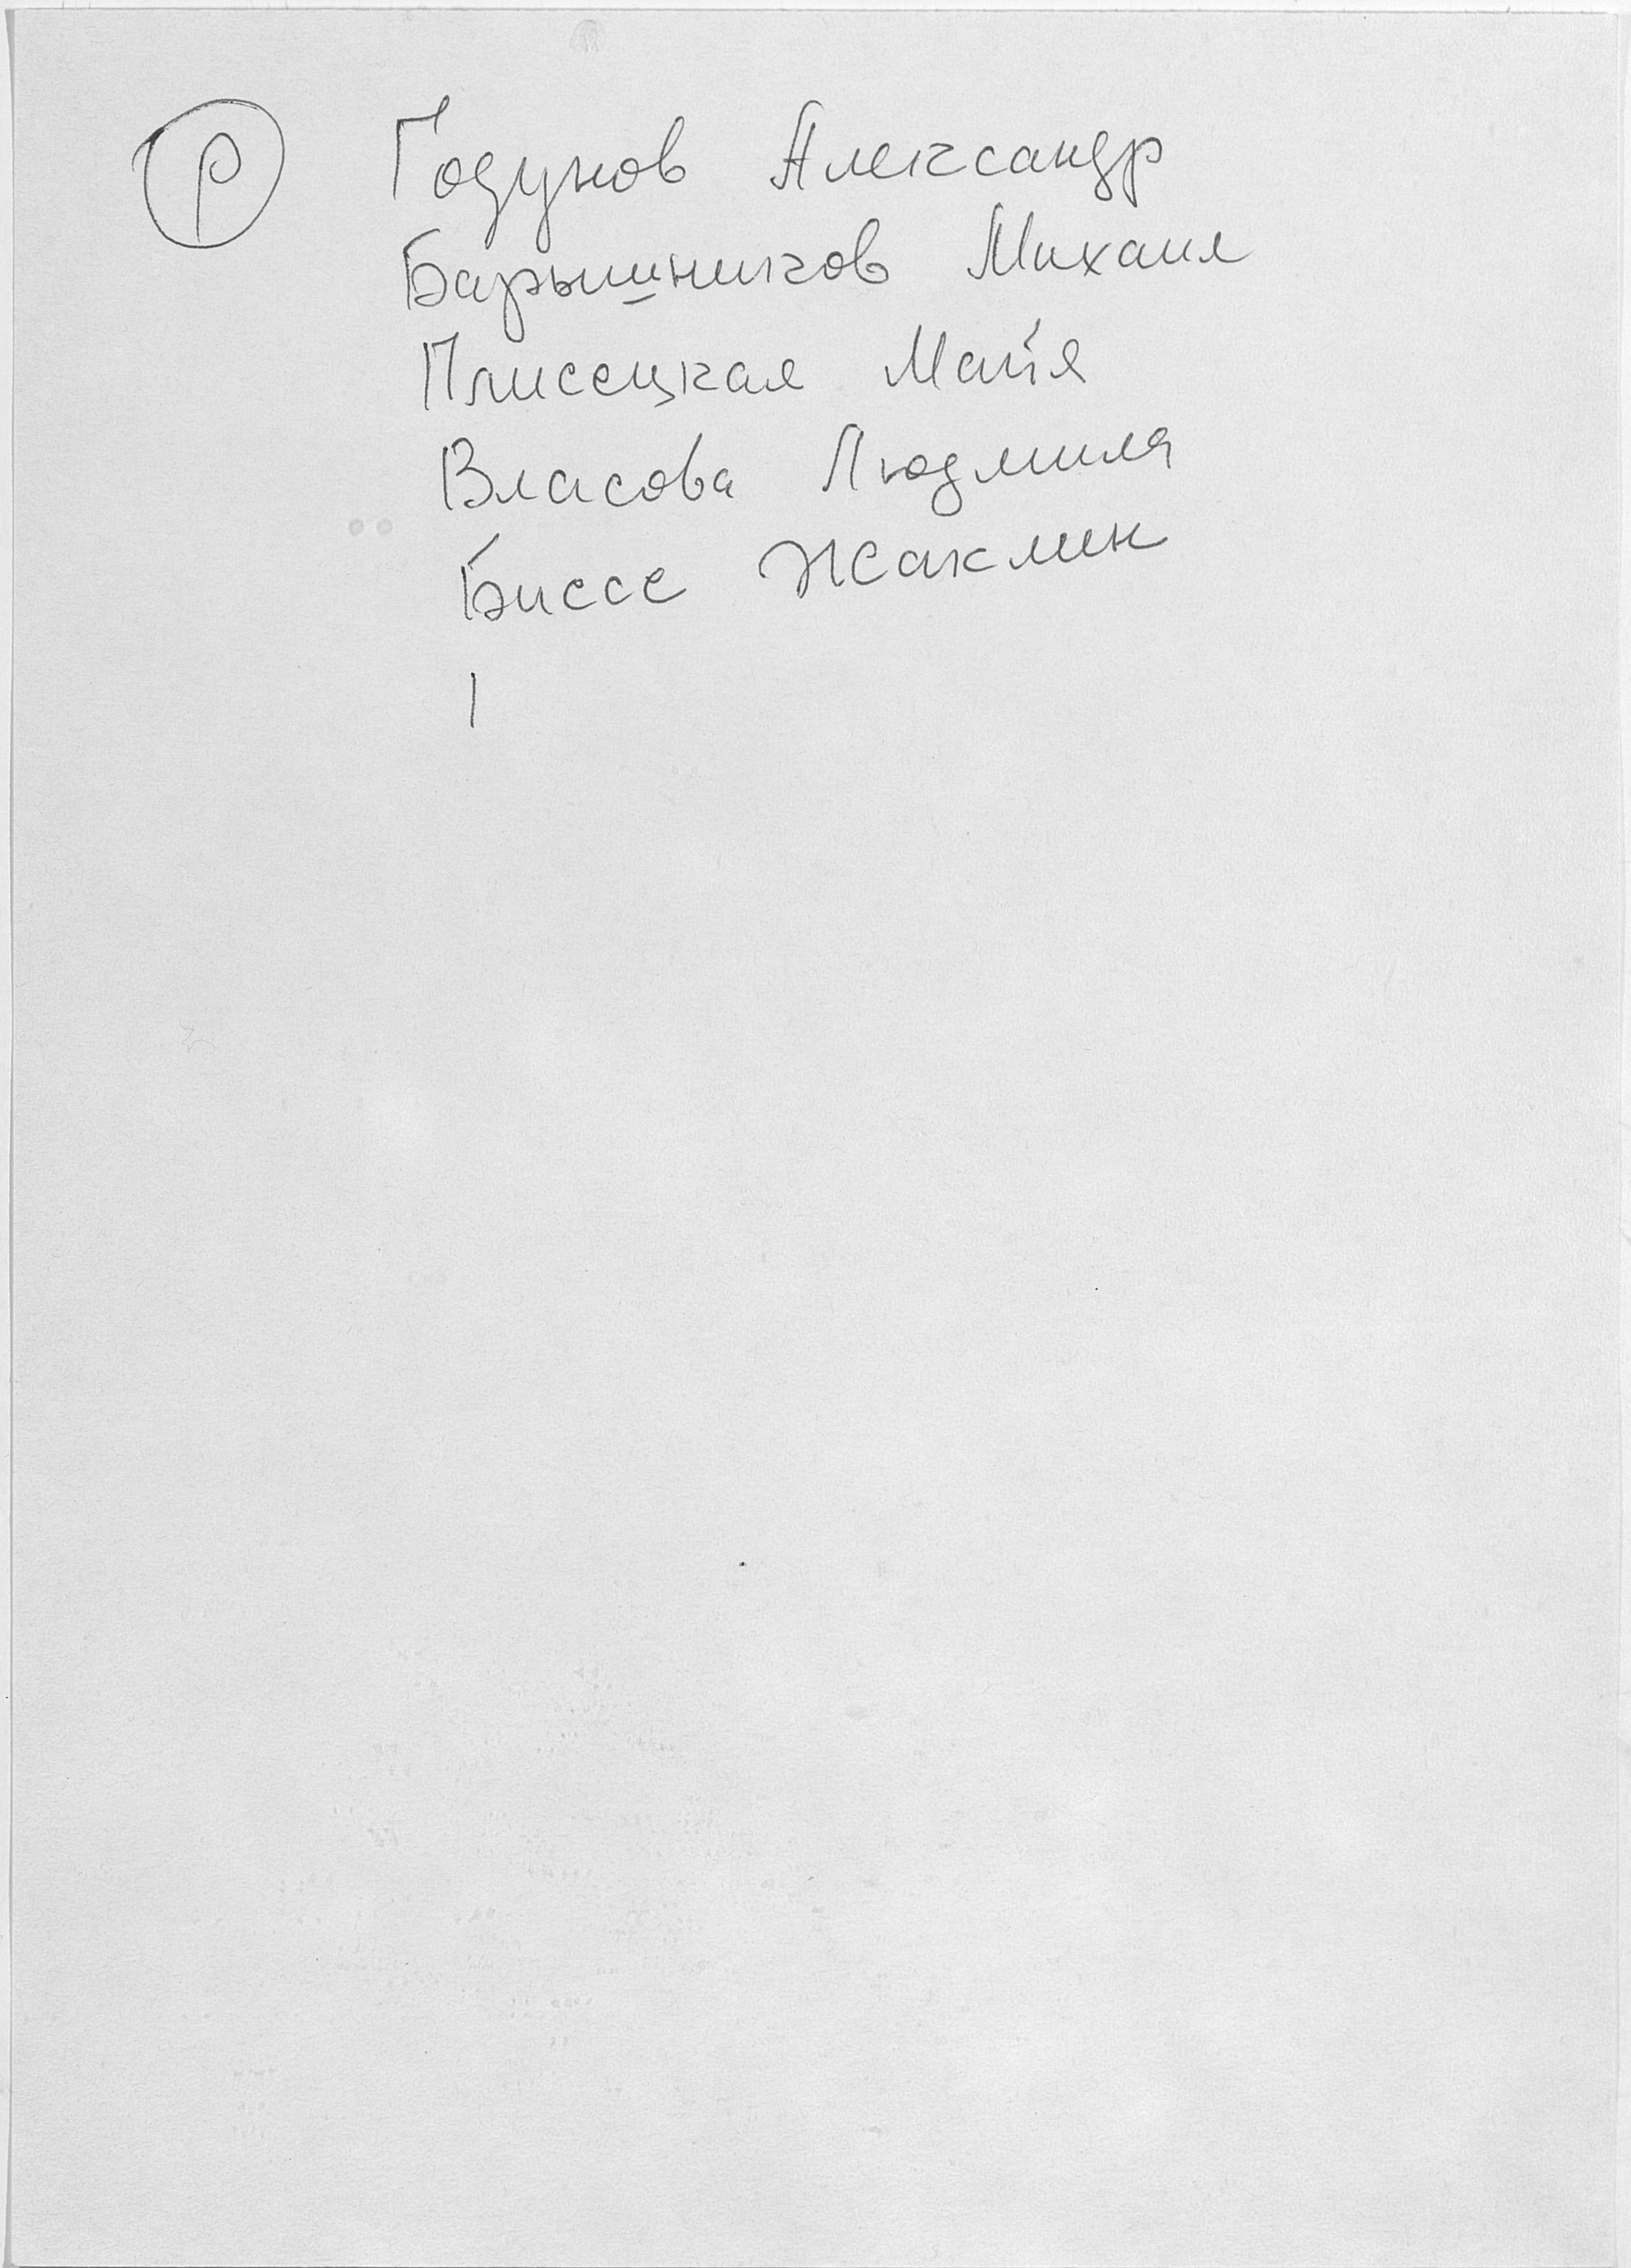 Р Годунов Александр
Барышников Михаил
Плисецкая Майя
Власова Людмила
Биссе Жаклин